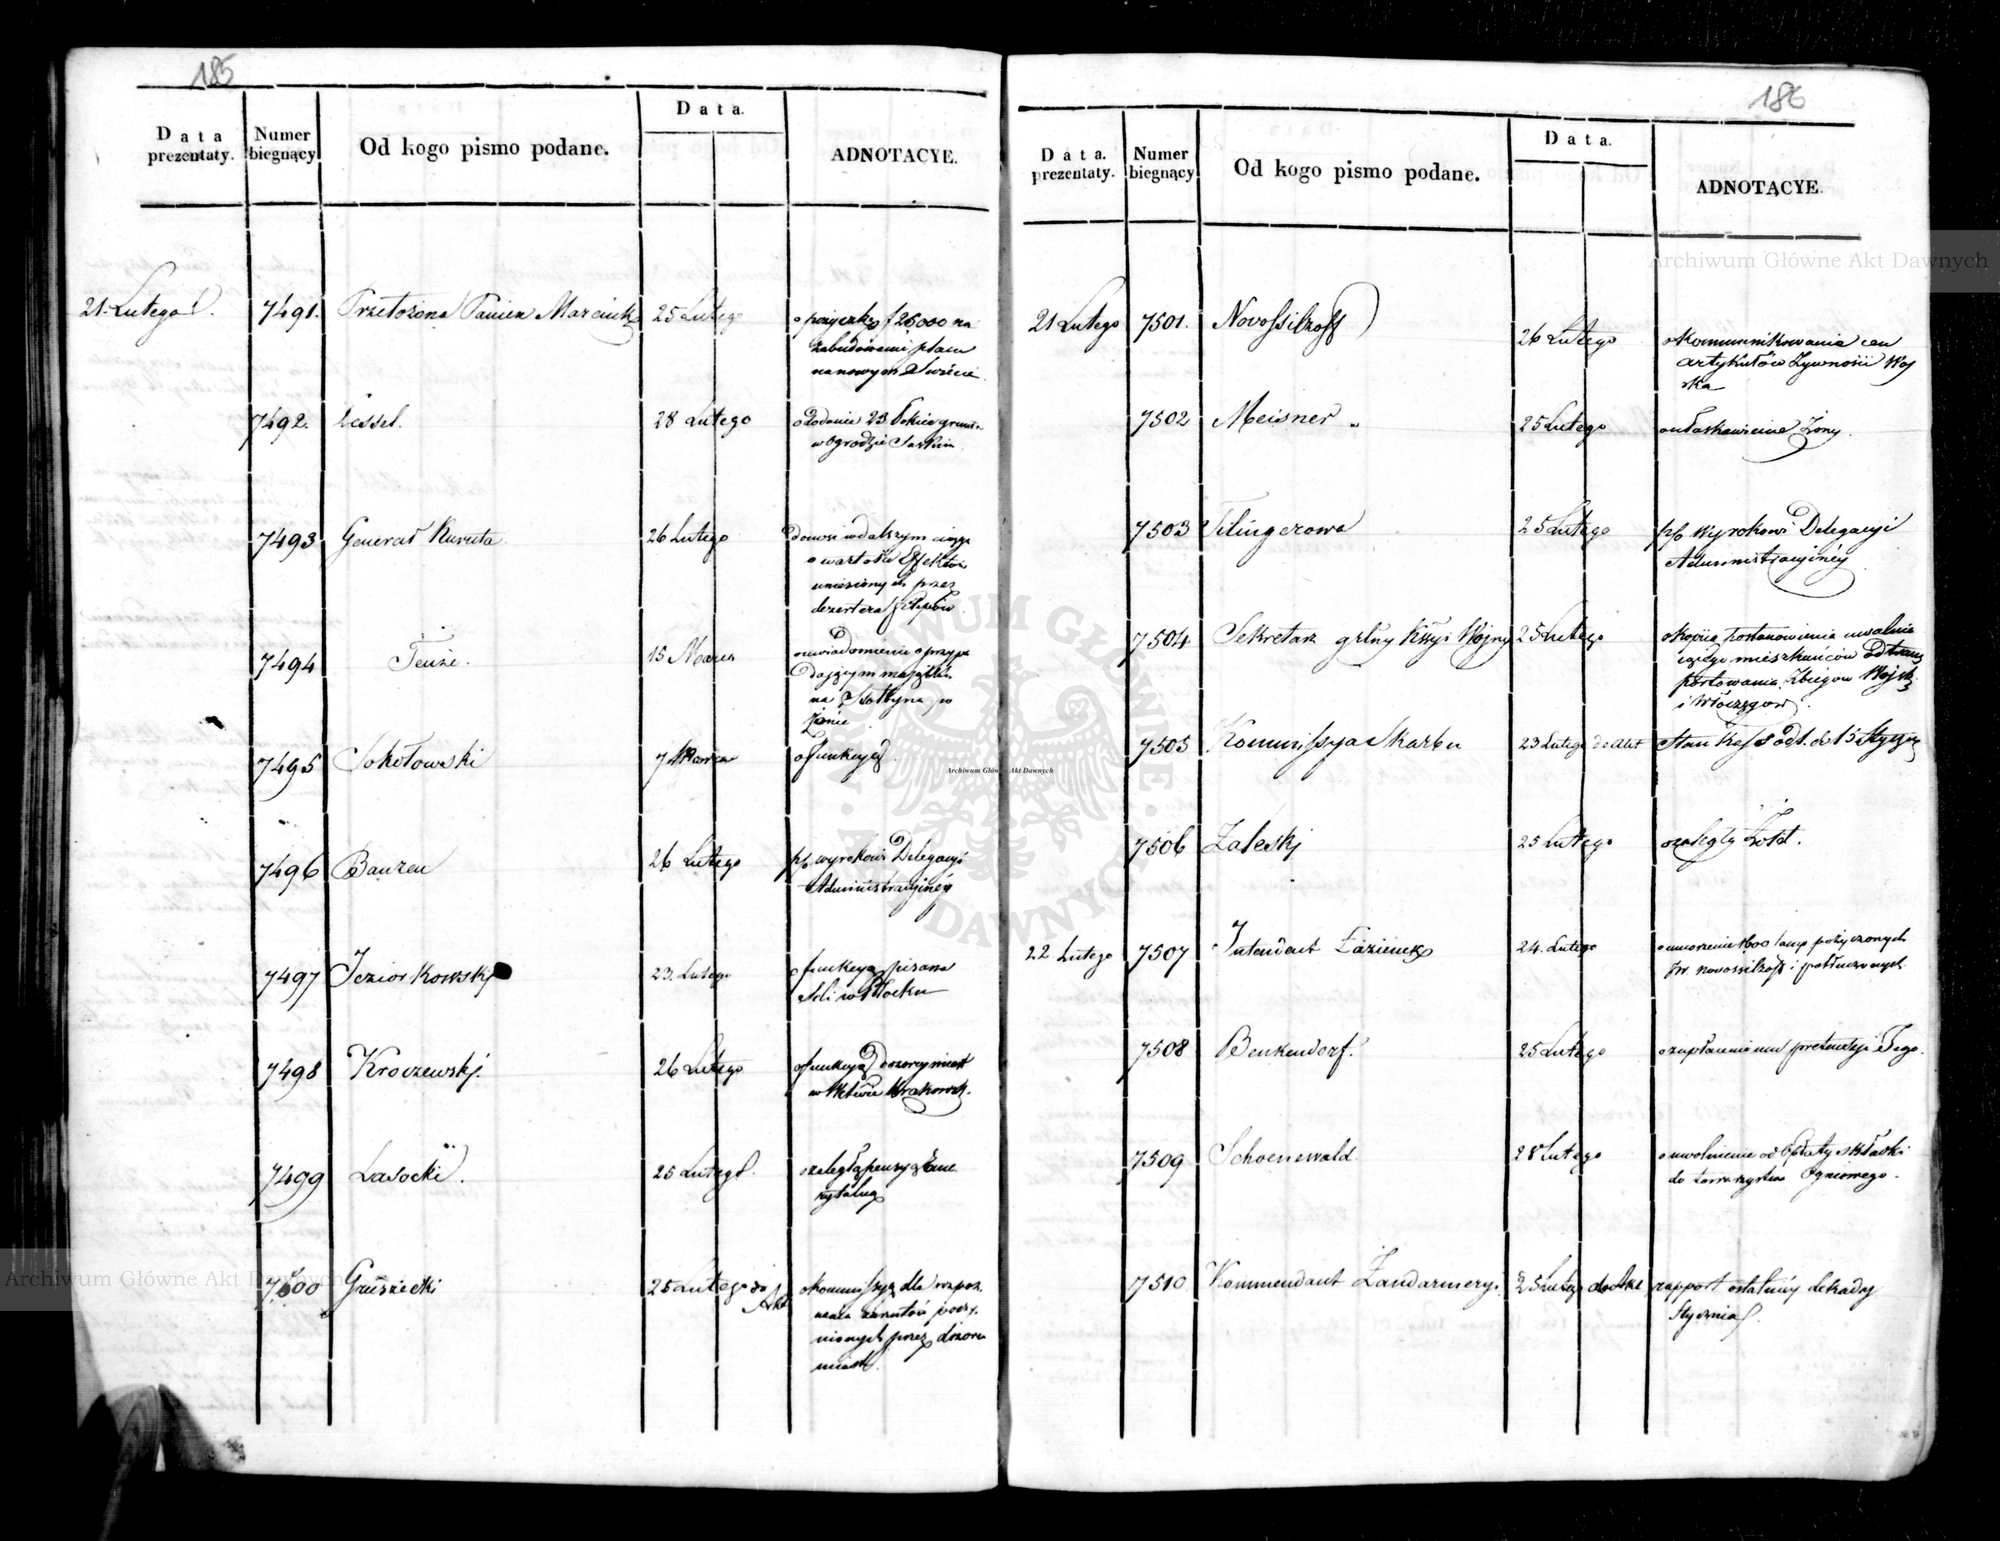 185
Data prezentaty.
Numer biegnący
Od kogo pismo podane.
Data.
ADNOTACYE.
21. Lutego 7491. Przełożona Panien 25 Lutego o pożyczkę f 26000 na
zabudowani placu
na nowym Świecie
7492. Lessel. 28 Lutego o dodanie 23 Łokci gruntu
w Ogrodzie Saskim
7493 Generał Kuruta 26 Lutego donosi w dalszym ciągu
o wartości Effektów
uniesionych przez
dezertera
7494 Tenże. 15 Marca o uwiadomienie o przypa
dającym majątku
na w
Żonie
7495 Sokołowski 7 Marca o funkcyą
7496 Bauzen 26 Lutego p/o wyrokowi Delegacyi
Administracyjnéy
7497 Jeziorkowski 23. Lutego o funkcyą pisarza
Soli w Płocku
7498 Kroczewskj. 26 Lutego o funkcyą Dozorcy miast
w Wdztwie Krakowsk.
7499 Lasocki. 25 Lutego o zaległą pensyą Eme
rytalną
7500 Gruszecki 25 Lutego do Akt o kommissyą dla rozpoz
nania zarzutów poczy
nionych przez dozorcę
miast.
186
Data. prezentaty.
Numer biegnący
Od kogo pismo podane.
Data.
ADNOTACYE.
21 Lutego 7501. Novossilzoff 26 Lutego o kommunikowanie cen
artykułów Żywności Woj
ska
7502 Meisner „ 25 Lutego o ułaskawienie Żony.
7503 Tilingerowa 25 Lutego p/o wyrokowi Delegacyi
Administracyjnéy
7504 Sekretarz gżlny Kssyi Wojny 25 Lutego o kopiią postanowienia uwalnia
iącego mieszkańców od trans
portowania Zbiegów Wojsk.
i Włóczęgów
7505 Kommissya Skarbu 23 Lutego do Akt Stan Kass od 1. do 15 Stycznia
7506 Zaleskj 25 Lutego o zaległy Żołd.
22 Lutego 7507 Intendant Łazienek 24. Lutego o umorzenie 1600 lamp pożyczonych
JW. Novossilzoff i potłuczonych
7508 Benkendorf. 25 Lutego o zapłacenie mu pretensyi Jego.
7509 Schoenewald 28 Lutego o uwolnienie od Opłaty składki
do towarzystwa Ogniowego.
7510 Kommendant Żandarmery. 25 Lutego do Akt rapport ostatniéy dekady
Stycznia
Archiwum Główne Akt Dawnych
Archiwum Główne Akt Dawnych
Archiwum Główne Akt Dawnych
ARCHIWUM GŁÓWNE AKT DAWNYCH